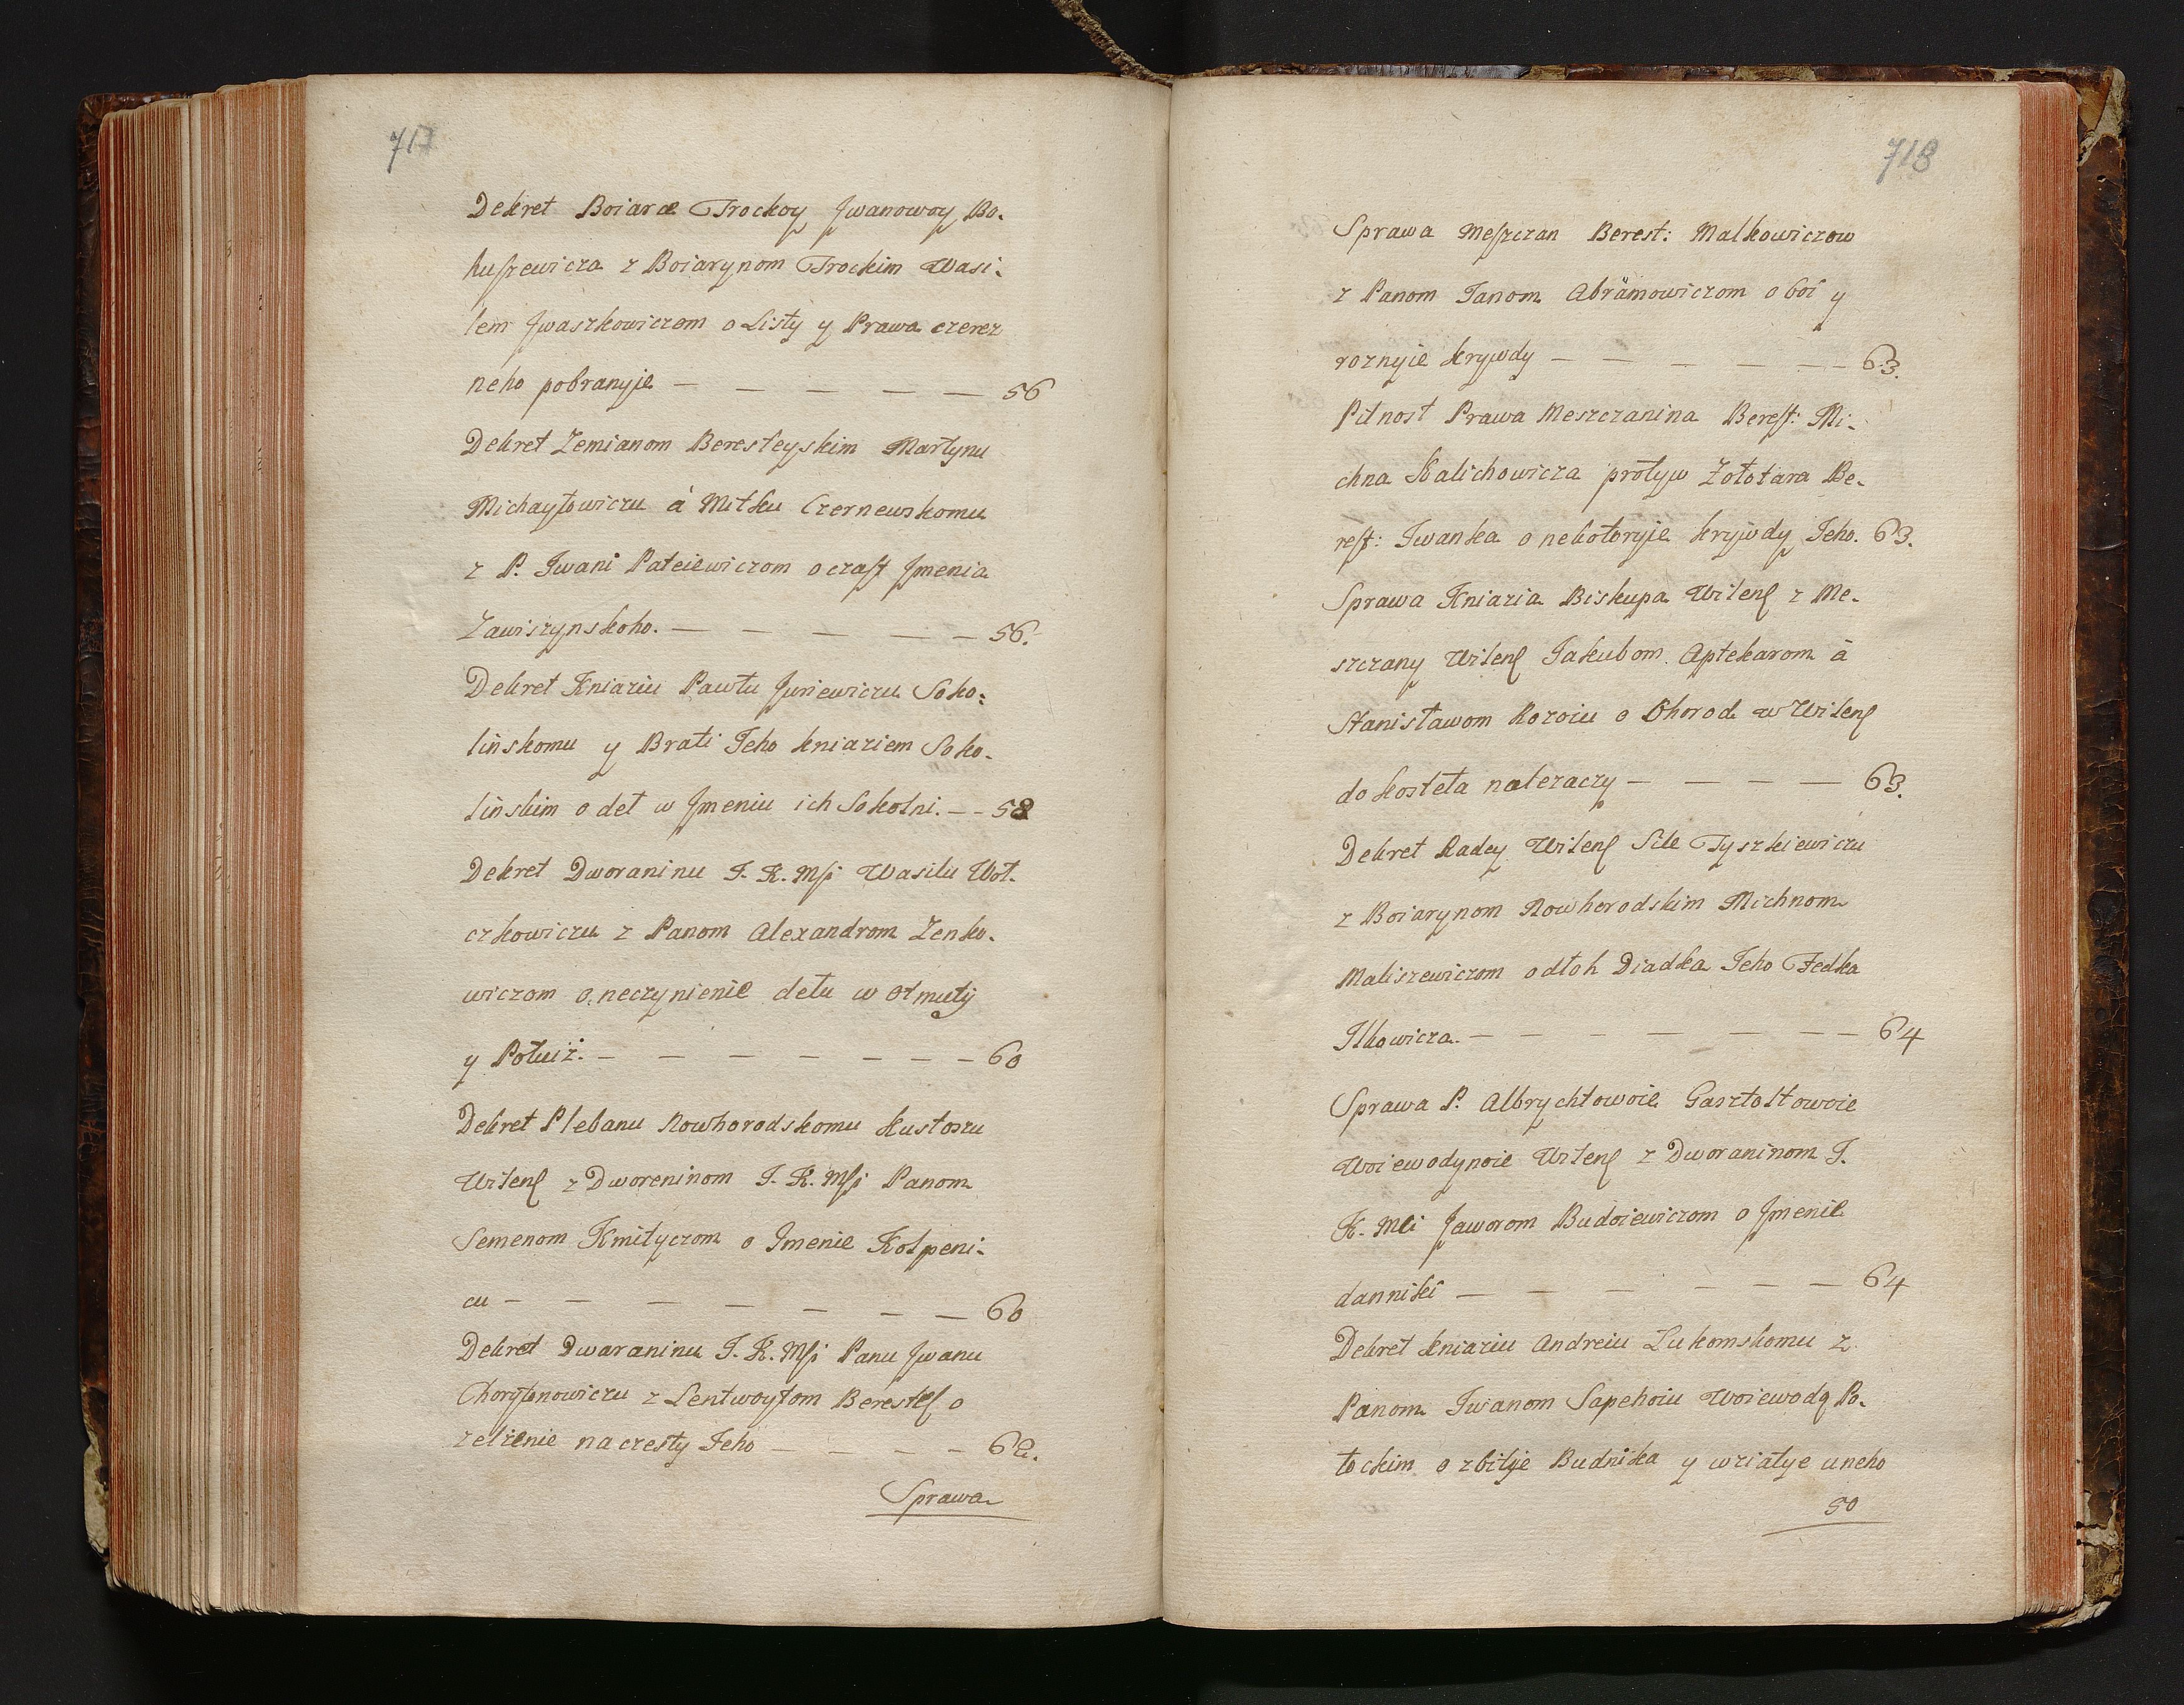 717
Dekret Boiarce Trockoy Jwanowoy Bo-
huſzewicza z Boiarynom Trockim Wasi-
lem Jwaszkowiczom o Listy y Prawa czerez
neho pobranyje — — — — — 56
Dekret Zemianom Beresteyskim Martynu
Michayłowiczu á Mitku Czernewskomu
z P. Iwani Pateiewiczom o czaſt Jmenia
Zawiszynskoho. — — — — — 56.
Dekret Kniaziu Pawłu Juriewiczu Soko-
linskomu y Brati Jeho kniaziem Soko-
linskim o deł w Jmeniu ich Sokolni. — — 58
Dekret Dworaninu J. K. Mſi Wasilu Woł-
czkowiczu z Panom Alexandrom Zenko-
wiczom o neczynienie dełu w Otmuty
y Połuiż. — — — — — — — 60
Dekret Plebanu Nowhorodskomu Kustoszu
Wilenſ z Dworeninom J. K. Mſi Panom
Semenom Kmityczom o Imenie Kolpeni-
cu — — — — — — — 60
Dekret Dwaraninu J. K. Mſi Panu Jwanu
Choryſonowiczu z Lentwoytom Beresteſ o
zelżenie na czesty Jeho — — — — 62.
Sprawa
718
Sprawa Meſzczan Berest: Malkowiczow
z Panom Janom Abramowiczom o boi y
roznyie krywdy — — — — — 63.
Pilnost Prawa Meszczanina Bereſt: Mi-
chna Kalichowicza protyw Zołotara Be-
reſt: Iwanka o nekotoryje krywdy Jeho. 63.
Sprawa Kniazia Biskupa Wilenſ z Me-
szczany Wilenſ Jakubom Aptekarom á
Stanisławom Kozoiu o Ohorod w Wilenſ
do kosteła nalezaczy — — — — 63.
Dekret Radcy Wilenſ Sile Tyszkiewiczu
z Boiarynom Nowhorodskim Michnom
Maliszewiczom o dłoh Diadka Jeho Fedka
Ilkowicza. — — — — — — — 64
Sprawa P. Albrychtowoie Gasztołtowoie
Woiewodynoie Wilenſ z Dworaninom J.
K. Mći Jaworom Budoiewiczom o Jmenie
danniki — — — — — — 64
Dekret kniaziu Andreiu Lukomskomu z
Panom Iwanom Sapehoiu Woiewodą Po-
łockim o zbitye Budnika y wziatye uneho
50